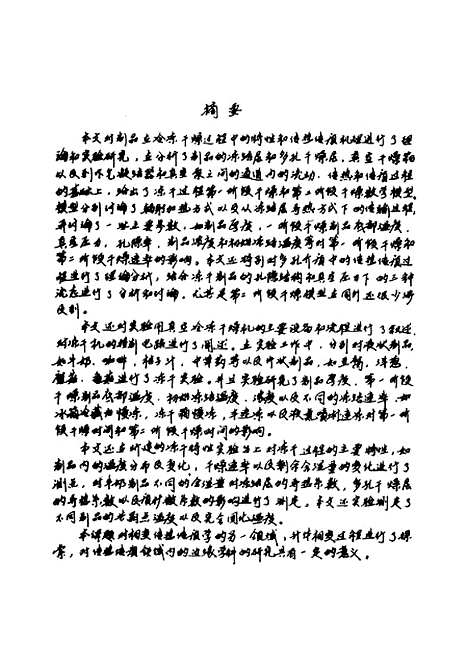 摘要
本文对制品在冷冻干燥过程中的特性和传热传质机理进行了理
论和实验研究,在分析了制品的冻结层和多孔干燥层,真空干燥箱
以及到水气凝结器和真空泵之间的通道内的流动、传热和传质过程
的基础上,给出了冻干过程第一阶段干燥和第二阶段干燥数学模型。
模型分别讨论了辐射加热方式以及从冻结层导热方式下的传输过程,
并讨论了一些主要参数,如制品厚度,一阶段干燥制品底部温度、
真空压力、孔隙率、制品浓度和初始冻结温度等对第一阶段干燥和
第二阶段干燥速率的影响。本文还特别对多孔介质中的传热传质过
程进行了理论分析,结合冻干制品的孔隙结构和真空压力下的三种
流态进行了分析和讨论,尤其是第二阶段干燥模型在国外还很少涉
及到。
本文还对实验用真空冷冻干燥机的主要设备和流程进行了叙述,
对冻干机的控制电路进行了阐述。在实验工作中,分别对液状制品,
如牛奶、咖啡、桔子汁、中草药等以及片状制品,如豆腐、洋葱、
蘑菇、进行了冻干实验。并且实验研究了制品厚度、第一阶段
干燥制品底部温度、初始冻结温度、浓度以及不同的冻结速率,如
冰箱冷藏和慢冻,冻干箱慢冻,半速冻以及液氮喷淋速冻对第一阶
段干燥时间和第二阶段干燥时间的影响。
本文还在所建的冻干特性实验台上对冻干过程的主要特性,如
制品内的温度分布及变化,干燥速率以及剩余含湿量的变化进行了
测量,对牛奶制品不同的含湿量对冻结层的导热系数,多孔干燥层
的导热系数以及的影响进行了测定。本文还实验测定了
不同制品的共熔点温度以及完全固化温度。
本课题对相变传热传质学的另一领域,升华相变过程进行了探
索,对传热传质领域内的边缘学科的研究具有一定的意义。